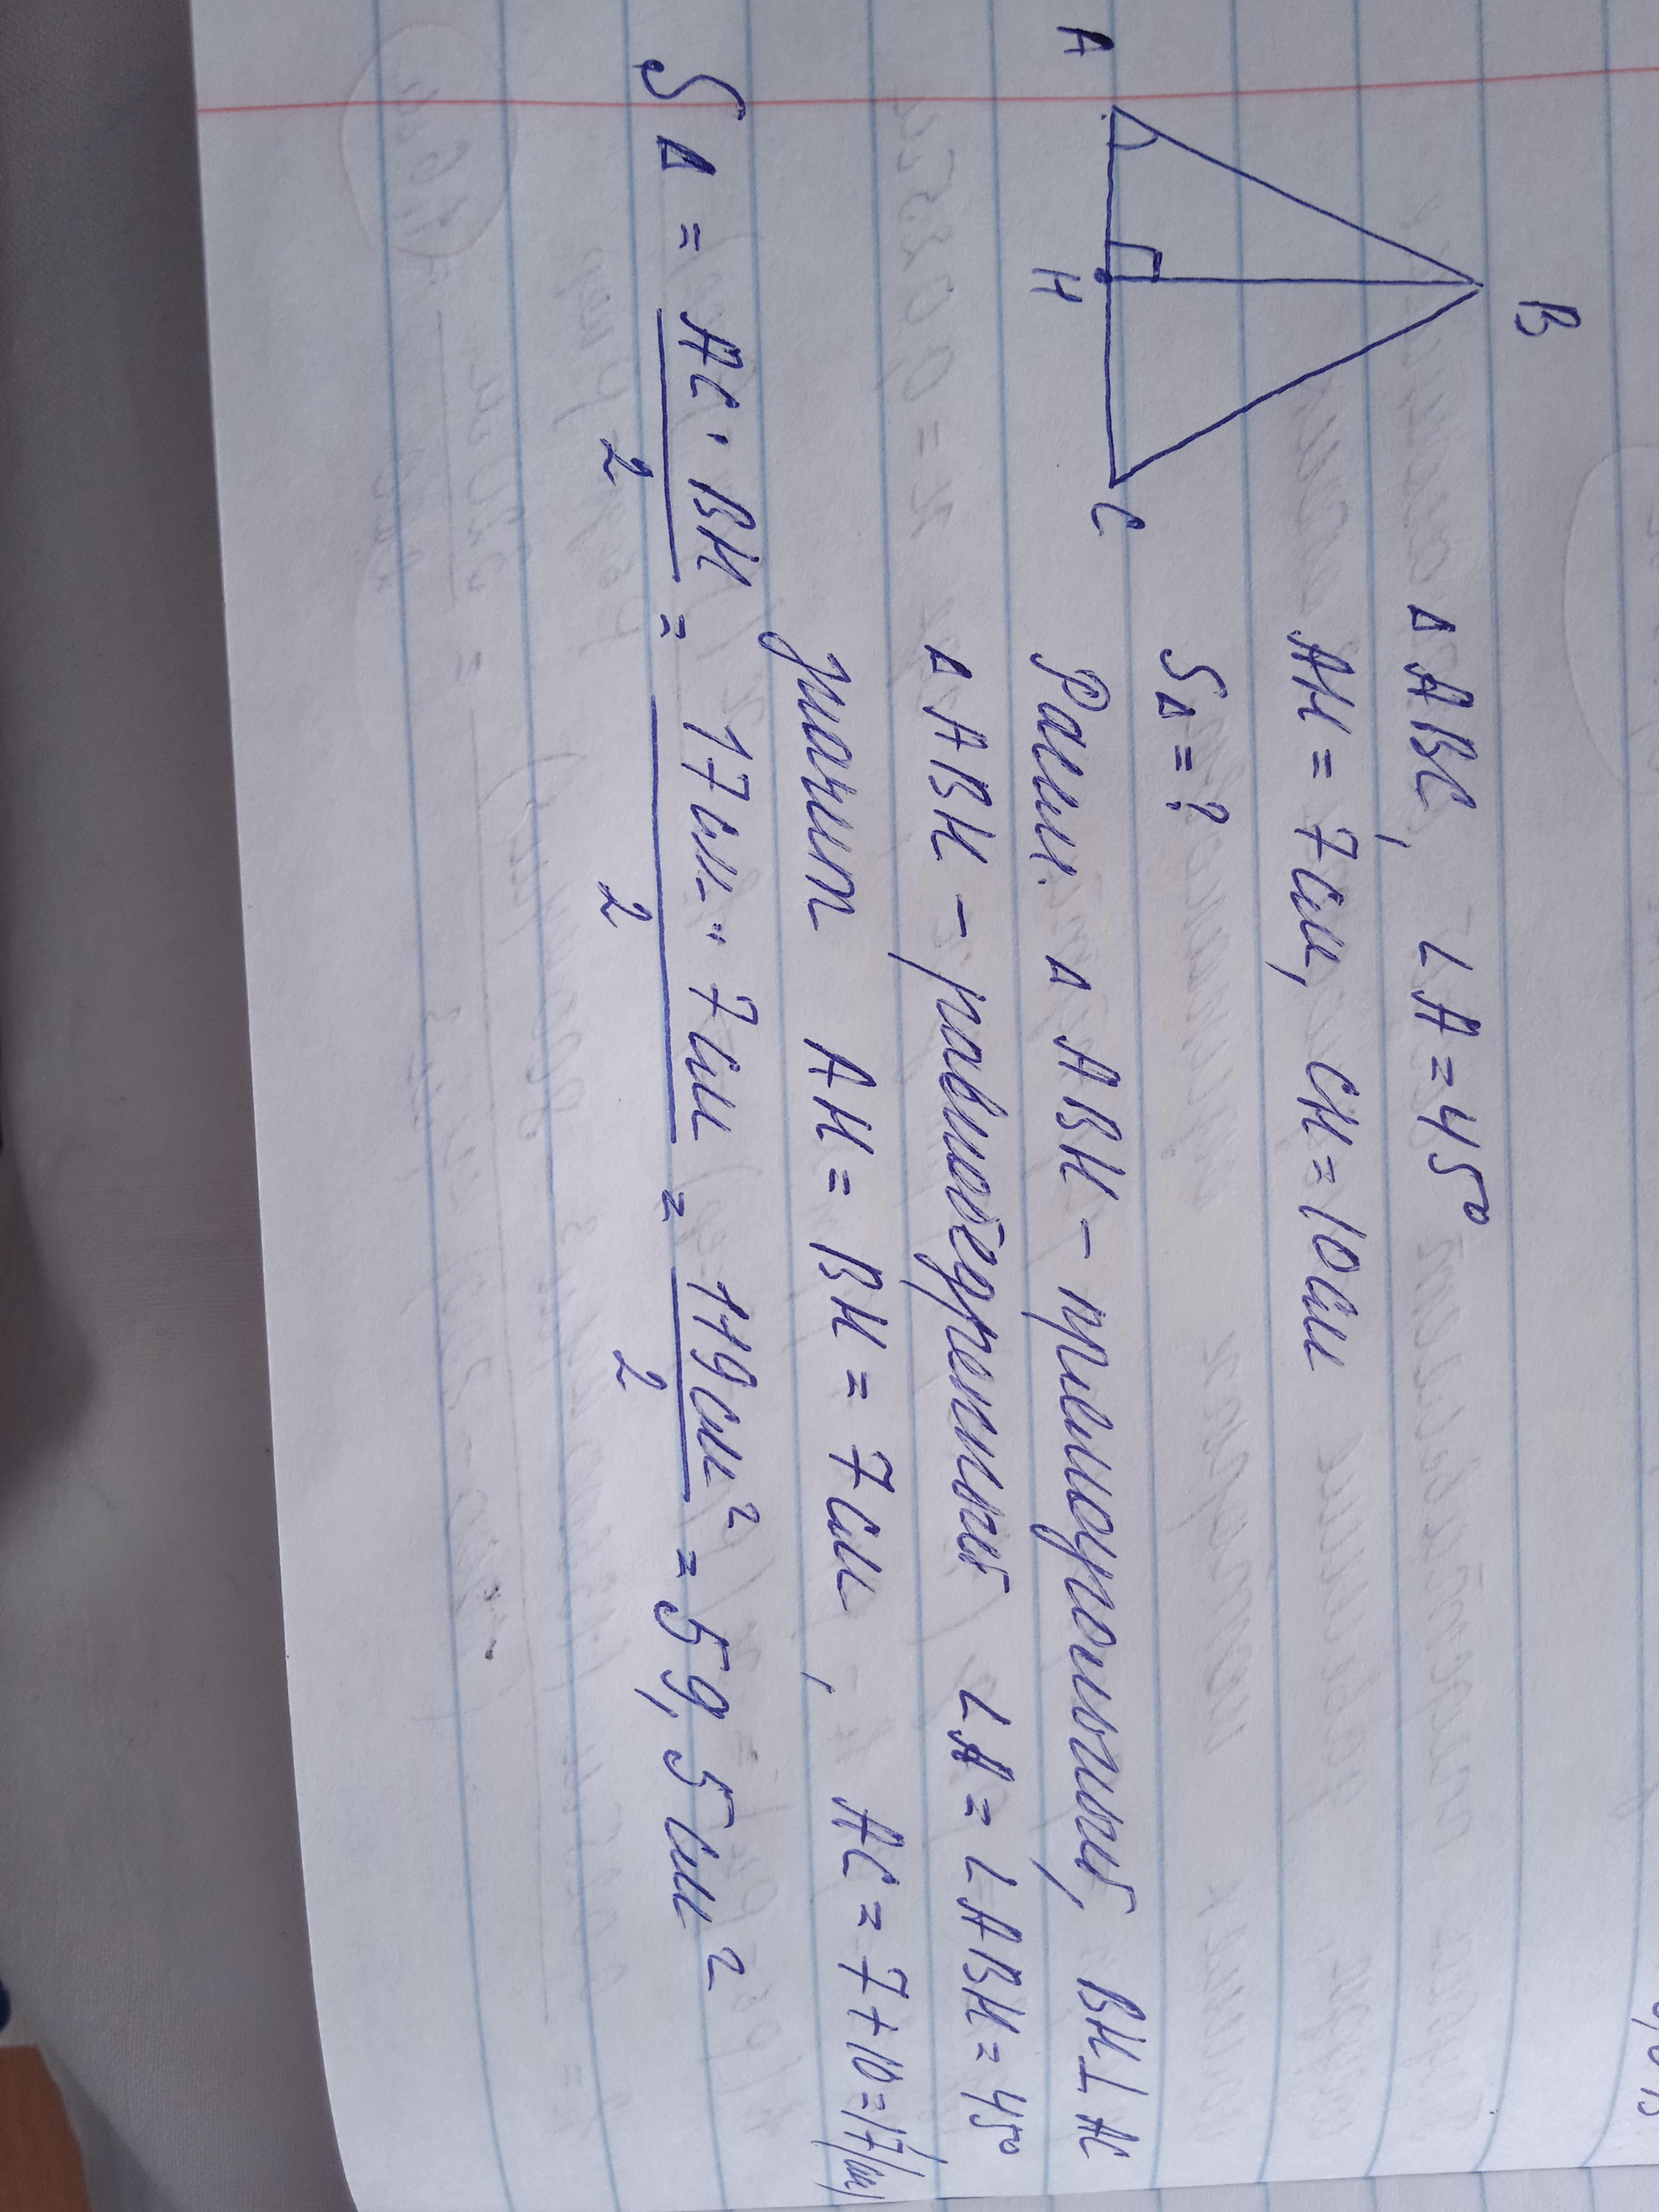 B
A
H
C
△ ABC, ∠A = 45°
AH = 7см, CH = 10см
S△ = ?
Рассм. △ ABH – прямоугольный, BH ⊥ AC
△ ABH – равнобедренный ∠A = ∠ABH = 45°
значит AH = BH = 7см, AC = 7+10=17(см)
S△ = AC · BH / 2 = 17см · 7см / 2 = 119см² / 2 = 59,5см²